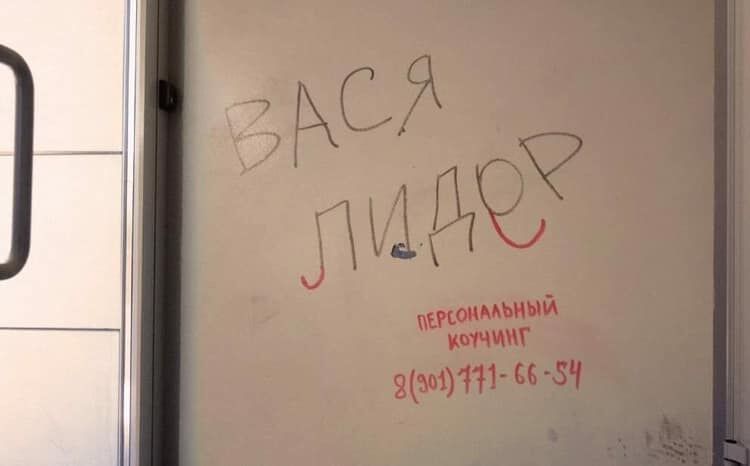 ВАСЯ
ЛИДОР
ПЕРСОНАЛЬНЫЙ
КОУЧИНГ
8(901)771-66-54